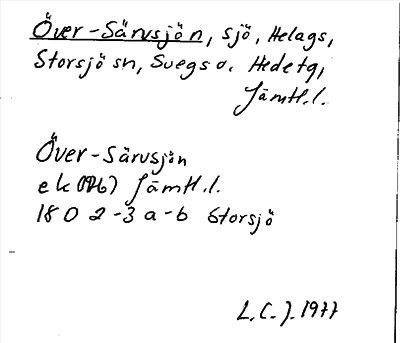 Över-Särvsjön, sjö, Helags,
Storsjö sn, Svegs o. Hede tg,
Jämtl.l.
Över-Särvsjön
ek (1976) Jämtl.l.
180 2-3 a-b Storsjö
L.C.J. 1977